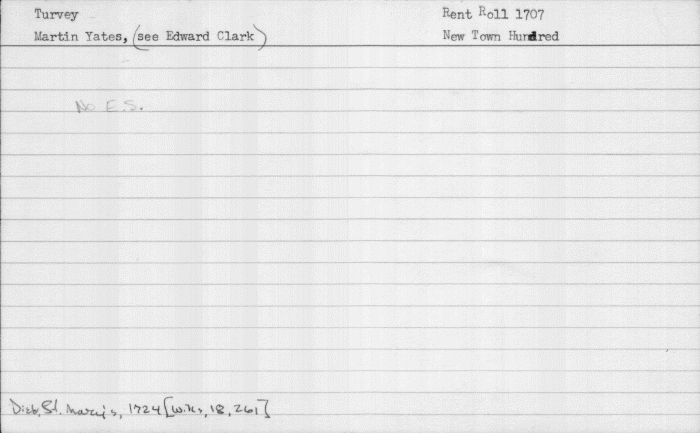 Turvey
Rent Roll 1707
Martin Yates, (see Edward Clark)
New Town Hundred
No E.S.
Died, St. Mary's, 1724 [Wills, 18, 261]